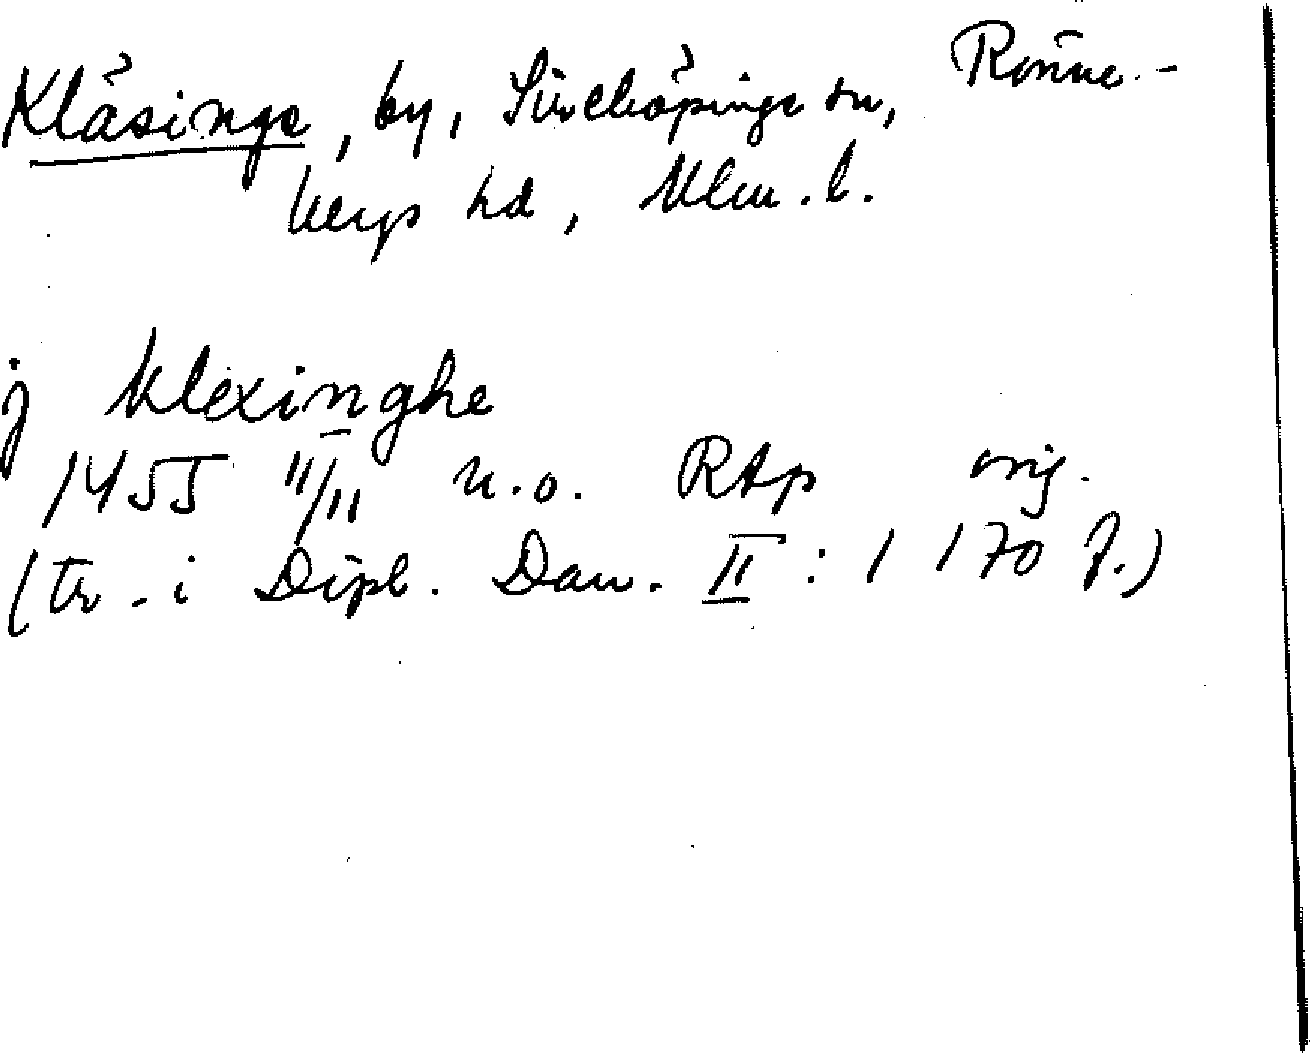 Kläsinge, by, Sireköpinge sn, Rönne-
bergs hd, Mlm. l.
j klexinghe
1455 11/11 u.o. RAp orig.
(tr. i Dipl. Dan. II : 1 170 f.)